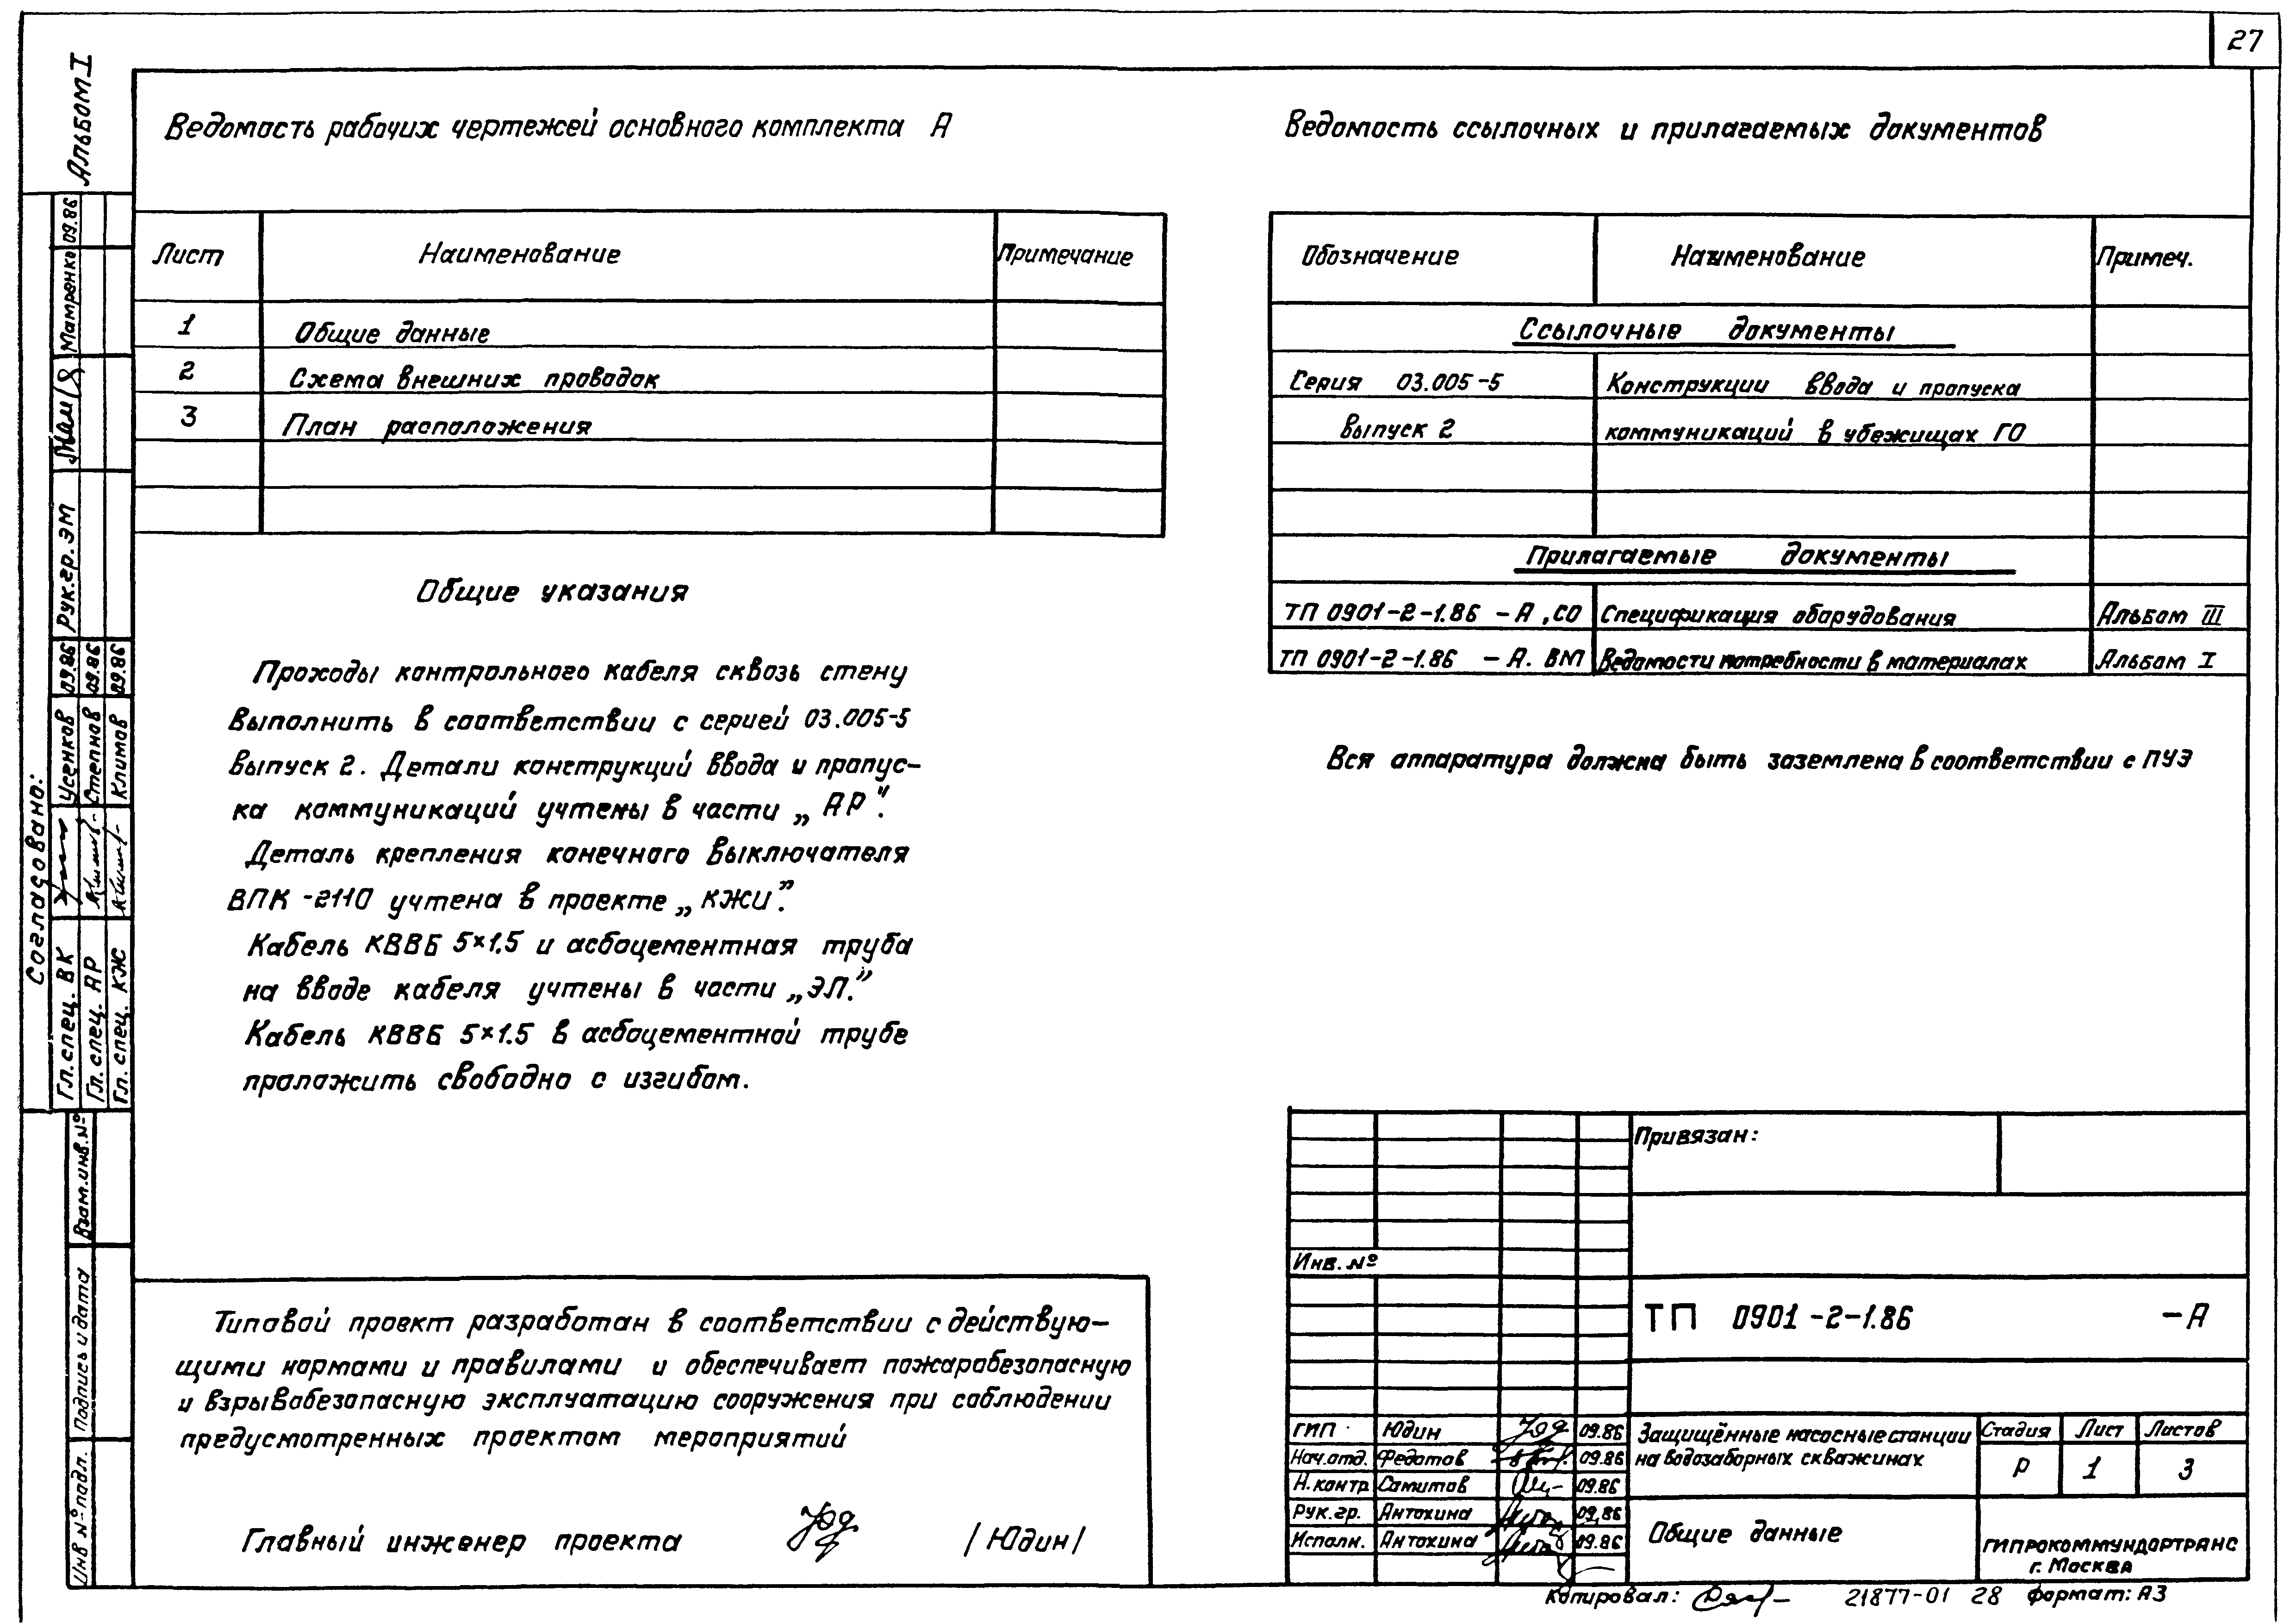 27
Альбом I
Ведомость рабочих чертежей основного комплекта А
Лист Наименование Примечание
1 Общие данные
2 Схема внешних проводок
3 План расположения
Ведомость ссылочных и прилагаемых документов
Обозначение Наименование Примеч.
Ссылочные документы
Серия 03.005-5 Конструкции ввода и пропуска
выпуск 2 коммуникаций в убежищах ГО
Прилагаемые документы
ТП 0901-2-1.86 -А,СО Спецификация оборудования Альбом III
ТП 0901-2-1.86 -А.ВМ Ведомости потребности в материалах Альбом I
Общие указания
Проходы контрольного кабеля сквозь стену
выполнить в соответствии с серией 03.005-5
выпуск 2. Детали конструкций ввода и пропус-
ка коммуникаций учтены в части „АР".
Деталь крепления конечного выключателя
ВПК-2110 учтена в проекте „КЖИ".
Кабель КВВБ 5×1.5 и асбоцементная труба
на вводе кабеля учтены в части „ЭЛ."
Кабель КВВБ 5×1.5 в асбоцементной трубе
проложить свободно с изгибом.
Вся аппаратура должна быть заземлена в соответствии с ПУЭ
Типовой проект разработан в соответствии с действую-
щими нормами и правилами и обеспечивает пожаробезопасную
и взрывобезопасную эксплуатацию сооружения при соблюдении
предусмотренных проектом мероприятий
Главный инженер проекта /Юдин/
Согласовано:
Гл. спец. ВК Усенков 09.86 Рук.гр. ЭМ Мамренко 09.86
Гл. спец. АР Степнов 09.86
Гл. спец. КЖ Климов 09.86
Взам.инв.№
Подпись и дата
Инв № подл.
Привязан:
Инв. №
ТП 0901-2-1.86 -А
ГИП Юдин 09.86
Нач.отд. Федотов 09.86
Н.контр Самитов 09.86
Рук.гр. Антохина 09.86
Исполн. Антохина 09.86
Защищённые насосные станции
на водозаборных скважинах
Стадия Лист Листов
Р 1 3
Общие данные
ГИПРОКОММУНДОРТРАНС
г. Москва
Копировал: 21877-01 28 формат: А3